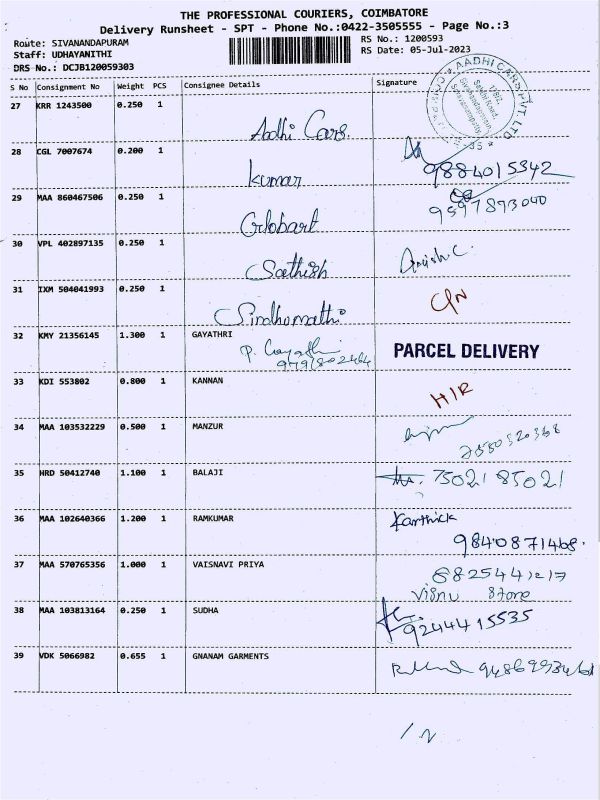 THE PROFESSIONAL COURIERS, COIMBATORE
Delivery Runsheet - SPT - Phone No.:0422-3505555 - Page No.:3
Route: SIVANANDAPURAM
RS No.: 1200593
Staff: UDHAYANITHI
RS Date: 05-Jul-2023
DRS No.: DCJB120059303
S No Consignment No Weight PCS Consignee Details Signature
AADHI CARS PVT LTD
27 KRR 1243500 0.250 1
Aadhi Cars.
28 CGL 7007674 0.200 1
Kumar 9884015342
29 MAA 860467506 0.250 1
Globart 9597893040
30 VPL 402897135 0.250 1
Sathish
31 IXM 504041993 0.250 1
Sindhomathi
32 KMY 21356145 1.300 1 GAYATHRI
P. Gayathri
PARCEL DELIVERY
33 KDI 553802 0.800 1 KANNAN
34 MAA 103532229 0.500 1 MANZUR
35 HRD 50412740 1.100 1 BALAJI 7502185021
36 MAA 102640366 1.200 1 RAMKUMAR Karthick
9840871468.
37 MAA 570765356 1.000 1 VAISNAVI PRIYA
Visnu Store
38 MAA 103813164 0.250 1 SUDHA
9244415535
39 VDK 5066982 0.655 1 GNANAM GARMENTS